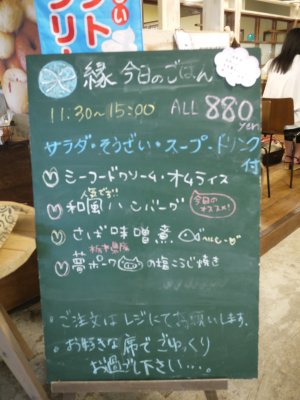 縁 今日のごはん
11:30～15:00 ALL 880 yen
サラダ・そうざい・スープ・ドリンク付
シーフードクリーム・オムライス
人気です!!
和風ハンバーグ
今日のオススメ!
さば味噌煮
栃木県産
夢ポークの塩こうじ焼き
・ご注文はレジにてお願いします。
・お好きな席でごゆっくり
お過ごし下さい...。